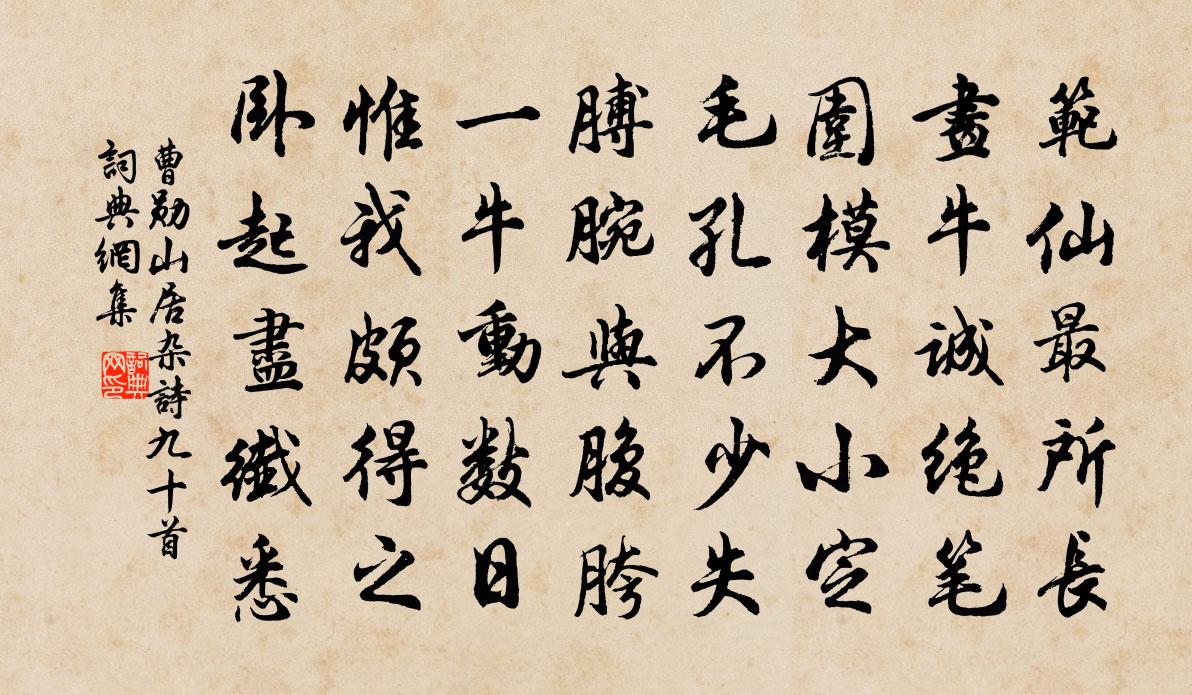 範仙最所長
畫牛誠絶笔
圍模大小定
毛孔不少失
膊腕與腹胯
一牛動數日
惟我頗得之
卧起盡纖悉
曹勛山居杂詩九十首
詞典網集
詞典网印